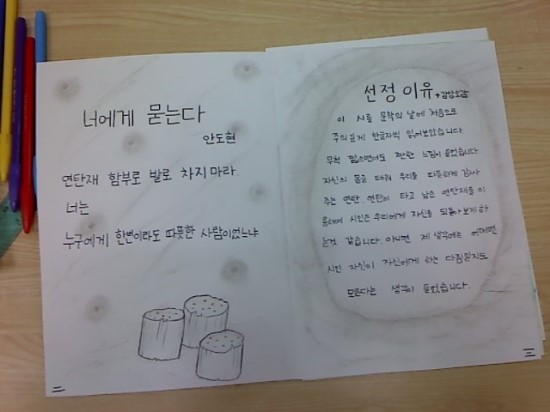 너에게 묻는다
안도현
연탄재 함부로 발로 차지 마라.
너는
누구에게 한번이라도 따뜻한 사람이었느냐
선정 이유 +감상소감
이 시를 문학의 날에 처음으로
주의깊게 한글자씩 읽어보았습니다.
무척 짧으면서도 강한 느낌이 들었습니다
자신의 몸을 태워 우리를 따뜻하게 감싸
주는 연탄. 연탄이 타고 남은 연탄재를 이
용해서 시인은 우리에게 자신을 되돌아보게 하
는것 같습니다. 아니면 제 생각에는 어쩌면
시인 자신이 자신에게 하는 다짐인지도
모른다는 생각이 들었습니다.